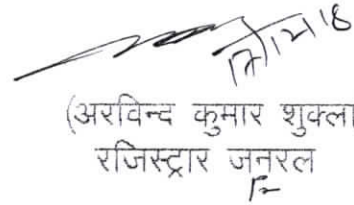 (अरविन्द कुमार शुक्ला
रजिस्ट्रार जनरल